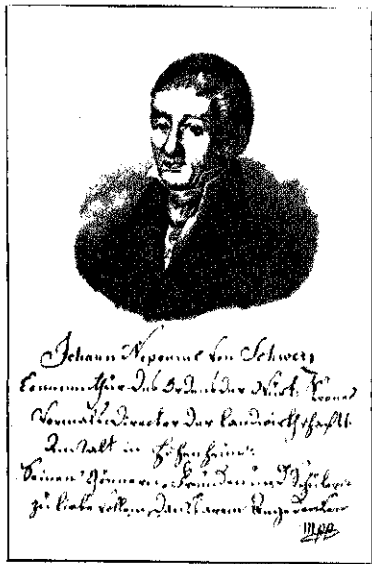 Johann Nepomuk von Schwerz
Commenthur des Ordens der Würt. Krone
Vormals Director der landwirthschaftl.
Anstalt in Hohenheim.
Seinen Gönnern, Freunden und Schülern
zu liebevollem, dankbarem Angedenken
mpp